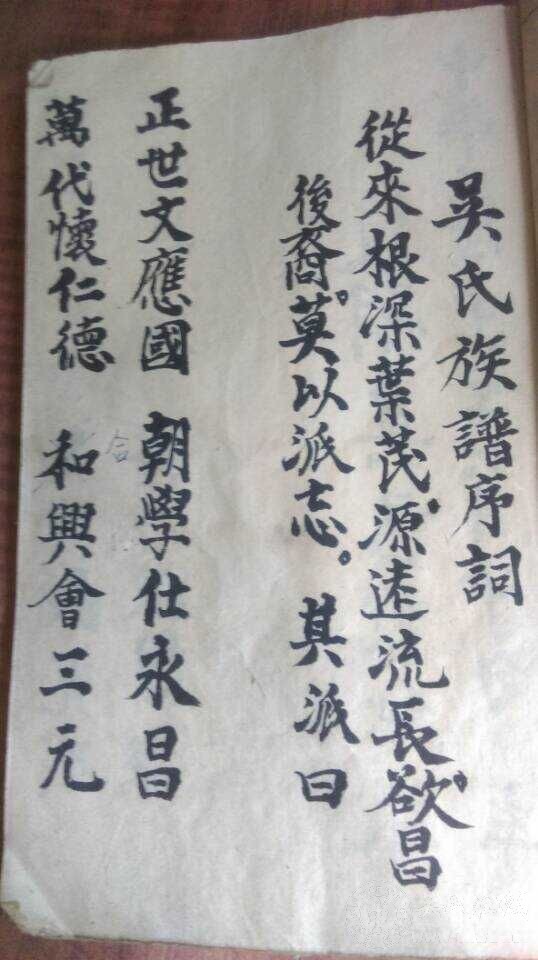 吳氏族譜序詞
從來根深葉茂，源遠流長，欲昌
後裔，莫以派志。其派曰
正世文應國 朝學仕永昌
萬代懷仁德 和興會三元
合